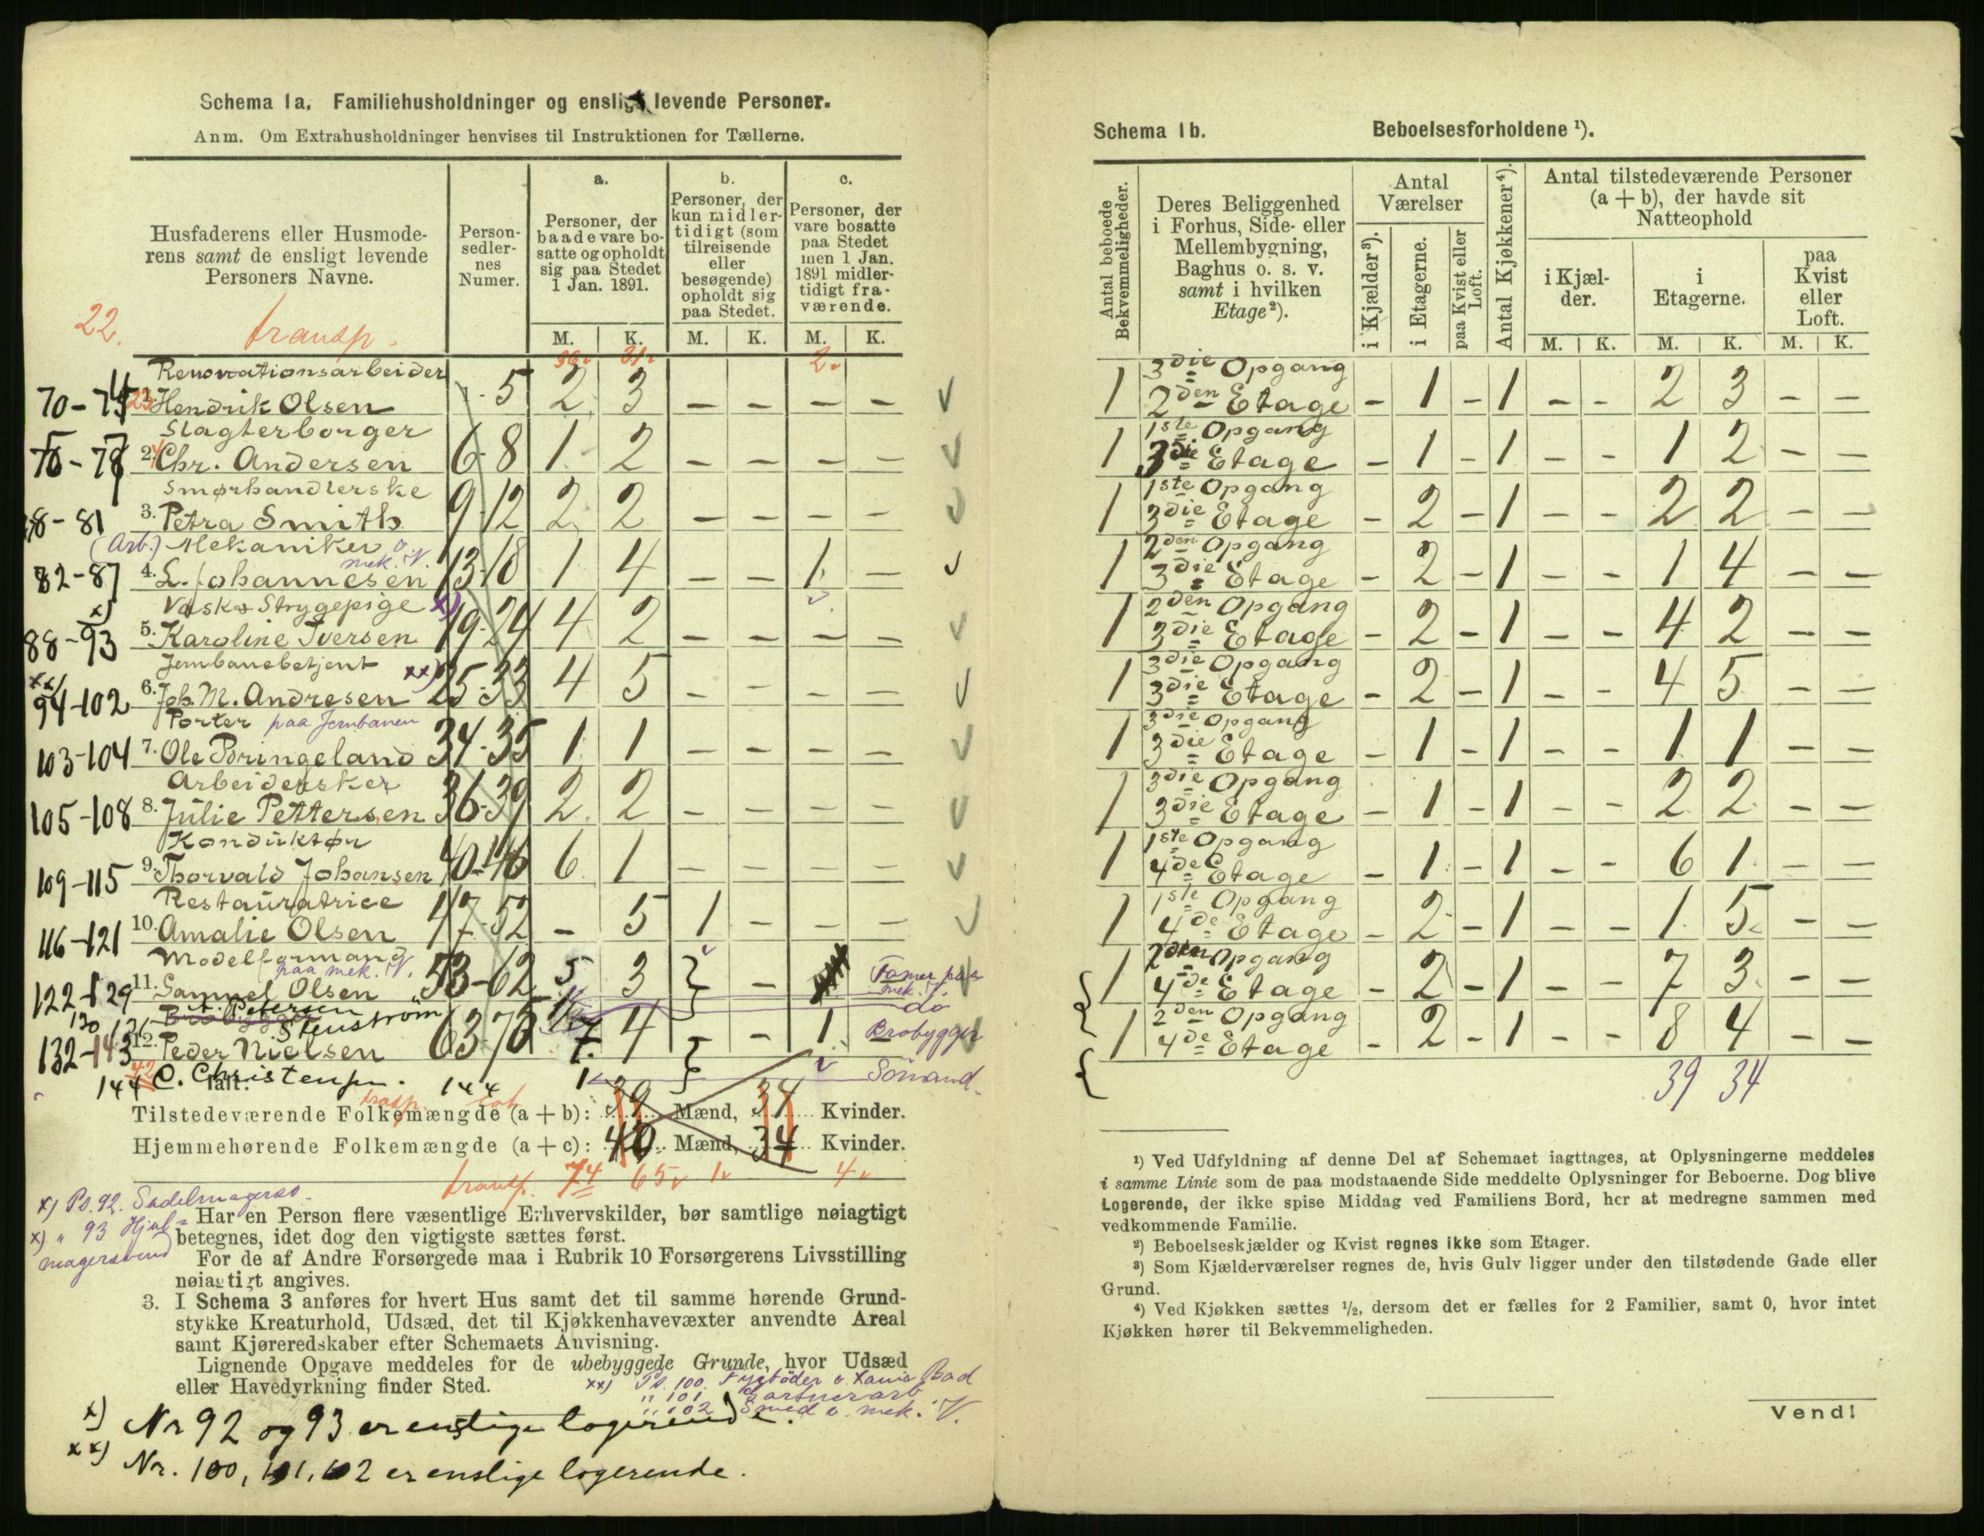 Schema 1a. Familiehusholdninger og ensligt levende Personer.
Anm. Om Extrahusholdninger henvises til Instruktionen for Tællerne.
Husfaderens eller Husmoderens samt de ensligt levende Personers Navne.
Personsedlernes Numer.
a.
Personer, der baade vare bosatte og opholdt sig paa Stedet 1 Jan. 1891.
b.
Personer, der kun midlertidigt (som tilreisende eller besøgende) opholdt sig paa Stedet.
c.
Personer, der vare bosatte paa Stedet men 1 Jan. 1891 midlertidigt fraværende.
M. K. M. K. M. K.
22. transp. 36 31 2
Renovationsarbeider
Hendrik Olsen 1-5 2 3 – – – –
Slagterborger
75-78 2. Chr. Andersen 6-8 1 2 – – – –
Smørhandlerske
78-81 3. Petra Smith 9-12 2 2 – – – –
(Arb.) Mekaniker o. mek. V.
82-87 4. L. Johannesen 13-18 1 4 – – 1 –
Vask & Strygepige x)
x) 88-93 5. Karoline Iversen 19-24 4 2 – – – –
Jernbanebetjent xx)
xx) 94-102 6. Joh. M. Andresen 25-33 4 5 – – – –
Porter paa Jernbanen
103-104 7. Ole Bringeland 34-35 1 1 – – – –
Arbeiderske
105-108 8. Julie Pettersen 36-39 2 2 – – – –
Konduktør
109-115 9. Thorvald Johansen 40-46 6 1 – – – –
Restauratrice
116-121 10. Amalie Olsen 47-52 – 5 1 – – –
Modelformand paa mek. V.
122-129 11. Samuel Olsen 53-62 5 3 –
130 A. Petersen
131 Stenstrøm do
132-143 12. Peder Nielsen 63-75 7 4 – 1 Brobygger
144 C. Christensen. 144 1
Ialt:
Tilstedeværende Folkemængde (a + b): 39 Mænd, 34 Kvinder.
Hjemmehørende Folkemængde (a + c): 40 Mænd, 34 Kvinder.
transp. 74 65 1 4
x) Ps. 92. Sadelmagersv.
x) " 93 Hjulmagersvend
Har en Person flere væsentlige Erhvervskilder, bør samtlige nøiagtigt
betegnes, idet dog den vigtigste sættes først.
For de af Andre Forsørgede maa i Rubrik 10 Forsørgerens Livsstilling
nøiagtigt angives.
3. I Schema 3 anføres for hvert Hus samt det til samme hørende Grund-
stykke Kreaturhold, Udsæd, det til Kjøkkenhavevæxter anvendte Areal
samt Kjøreredskaber efter Schemaets Anvisning.
Lignende Opgave meddeles for de ubebyggede Grunde, hvor Udsæd
eller Havedyrkning finder Sted.
xx) Ps. 100. Fyrbøder o. Xania Bad
" 101 Gartnerarb
" 102 Smed o. mek. V.
x) Nr 92 og 93 er enslige logerende.
xx) Nr. 100, 101, 102 er enslige logerende.
Schema 1b. Beboelsesforholdene ¹).
Antal beboede Bekvemmeligheder.
Deres Beliggenhed i Forhus, Side- eller Mellembygning, Baghus o. s. v. samt i hvilken Etage²).
Antal Værelser
i Kjælder³). i Etagerne. paa Kvist eller Loft.
Antal Kjøkkener⁴).
Antal tilstedeværende Personer (a + b), der havde sit Natteophold
i Kjælder. i Etagerne. paa Kvist eller Loft.
M. K. M. K. M. K.
3die Opgang
1 2den Etage – 1 – 1 – – 2 3 – –
1ste Opgang
1 3die Etage – 1 – 1 – – 1 2 – –
1ste Opgang
1 3die Etage – 2 – 1 – – 2 2 – –
2den Opgang
1 3die Etage – 2 – 1 – – 1 4 – –
2den Opgang
1 3die Etage – 2 – 1 – – 4 2 – –
3die Opgang
1 3die Etage – 2 – 1 – – 4 5 – –
3die Opgang
1 3die Etage – 1 – 1 – – 1 1 – –
3die Opgang
1 3die Etage – 1 – 1 – – 2 2 – –
1ste Opgang
1 4de Etage – 1 – 1 – – 6 1 – –
1ste Opgang
1 4de Etage – 2 – 1 – – 1 5 – –
2den Opgang
1 4de Etage – 2 – 1 – – 7 3 – –
2den Opgang
1 4de Etage – 2 – 1 – – 8 4 – –
39 34
¹) Ved Udfyldning af denne Del af Schemaet iagttages, at Oplysningerne meddeles
i samme Linie som de paa modstaaende Side meddelte Oplysninger for Beboerne. Dog blive
Logerende, der ikke spise Middag ved Familiens Bord, her at medregne sammen med
vedkommende Familie.
²) Beboelseskjælder og Kvist regnes ikke som Etager.
³) Som Kjælderværelser regnes de, hvis Gulv ligger under den tilstødende Gade eller
Grund.
⁴) Ved Kjøkken sættes ¹/₂, dersom det er fælles for 2 Familier, samt 0, hvor intet
Kjøkken hører til Bekvemmeligheden.
Vend!